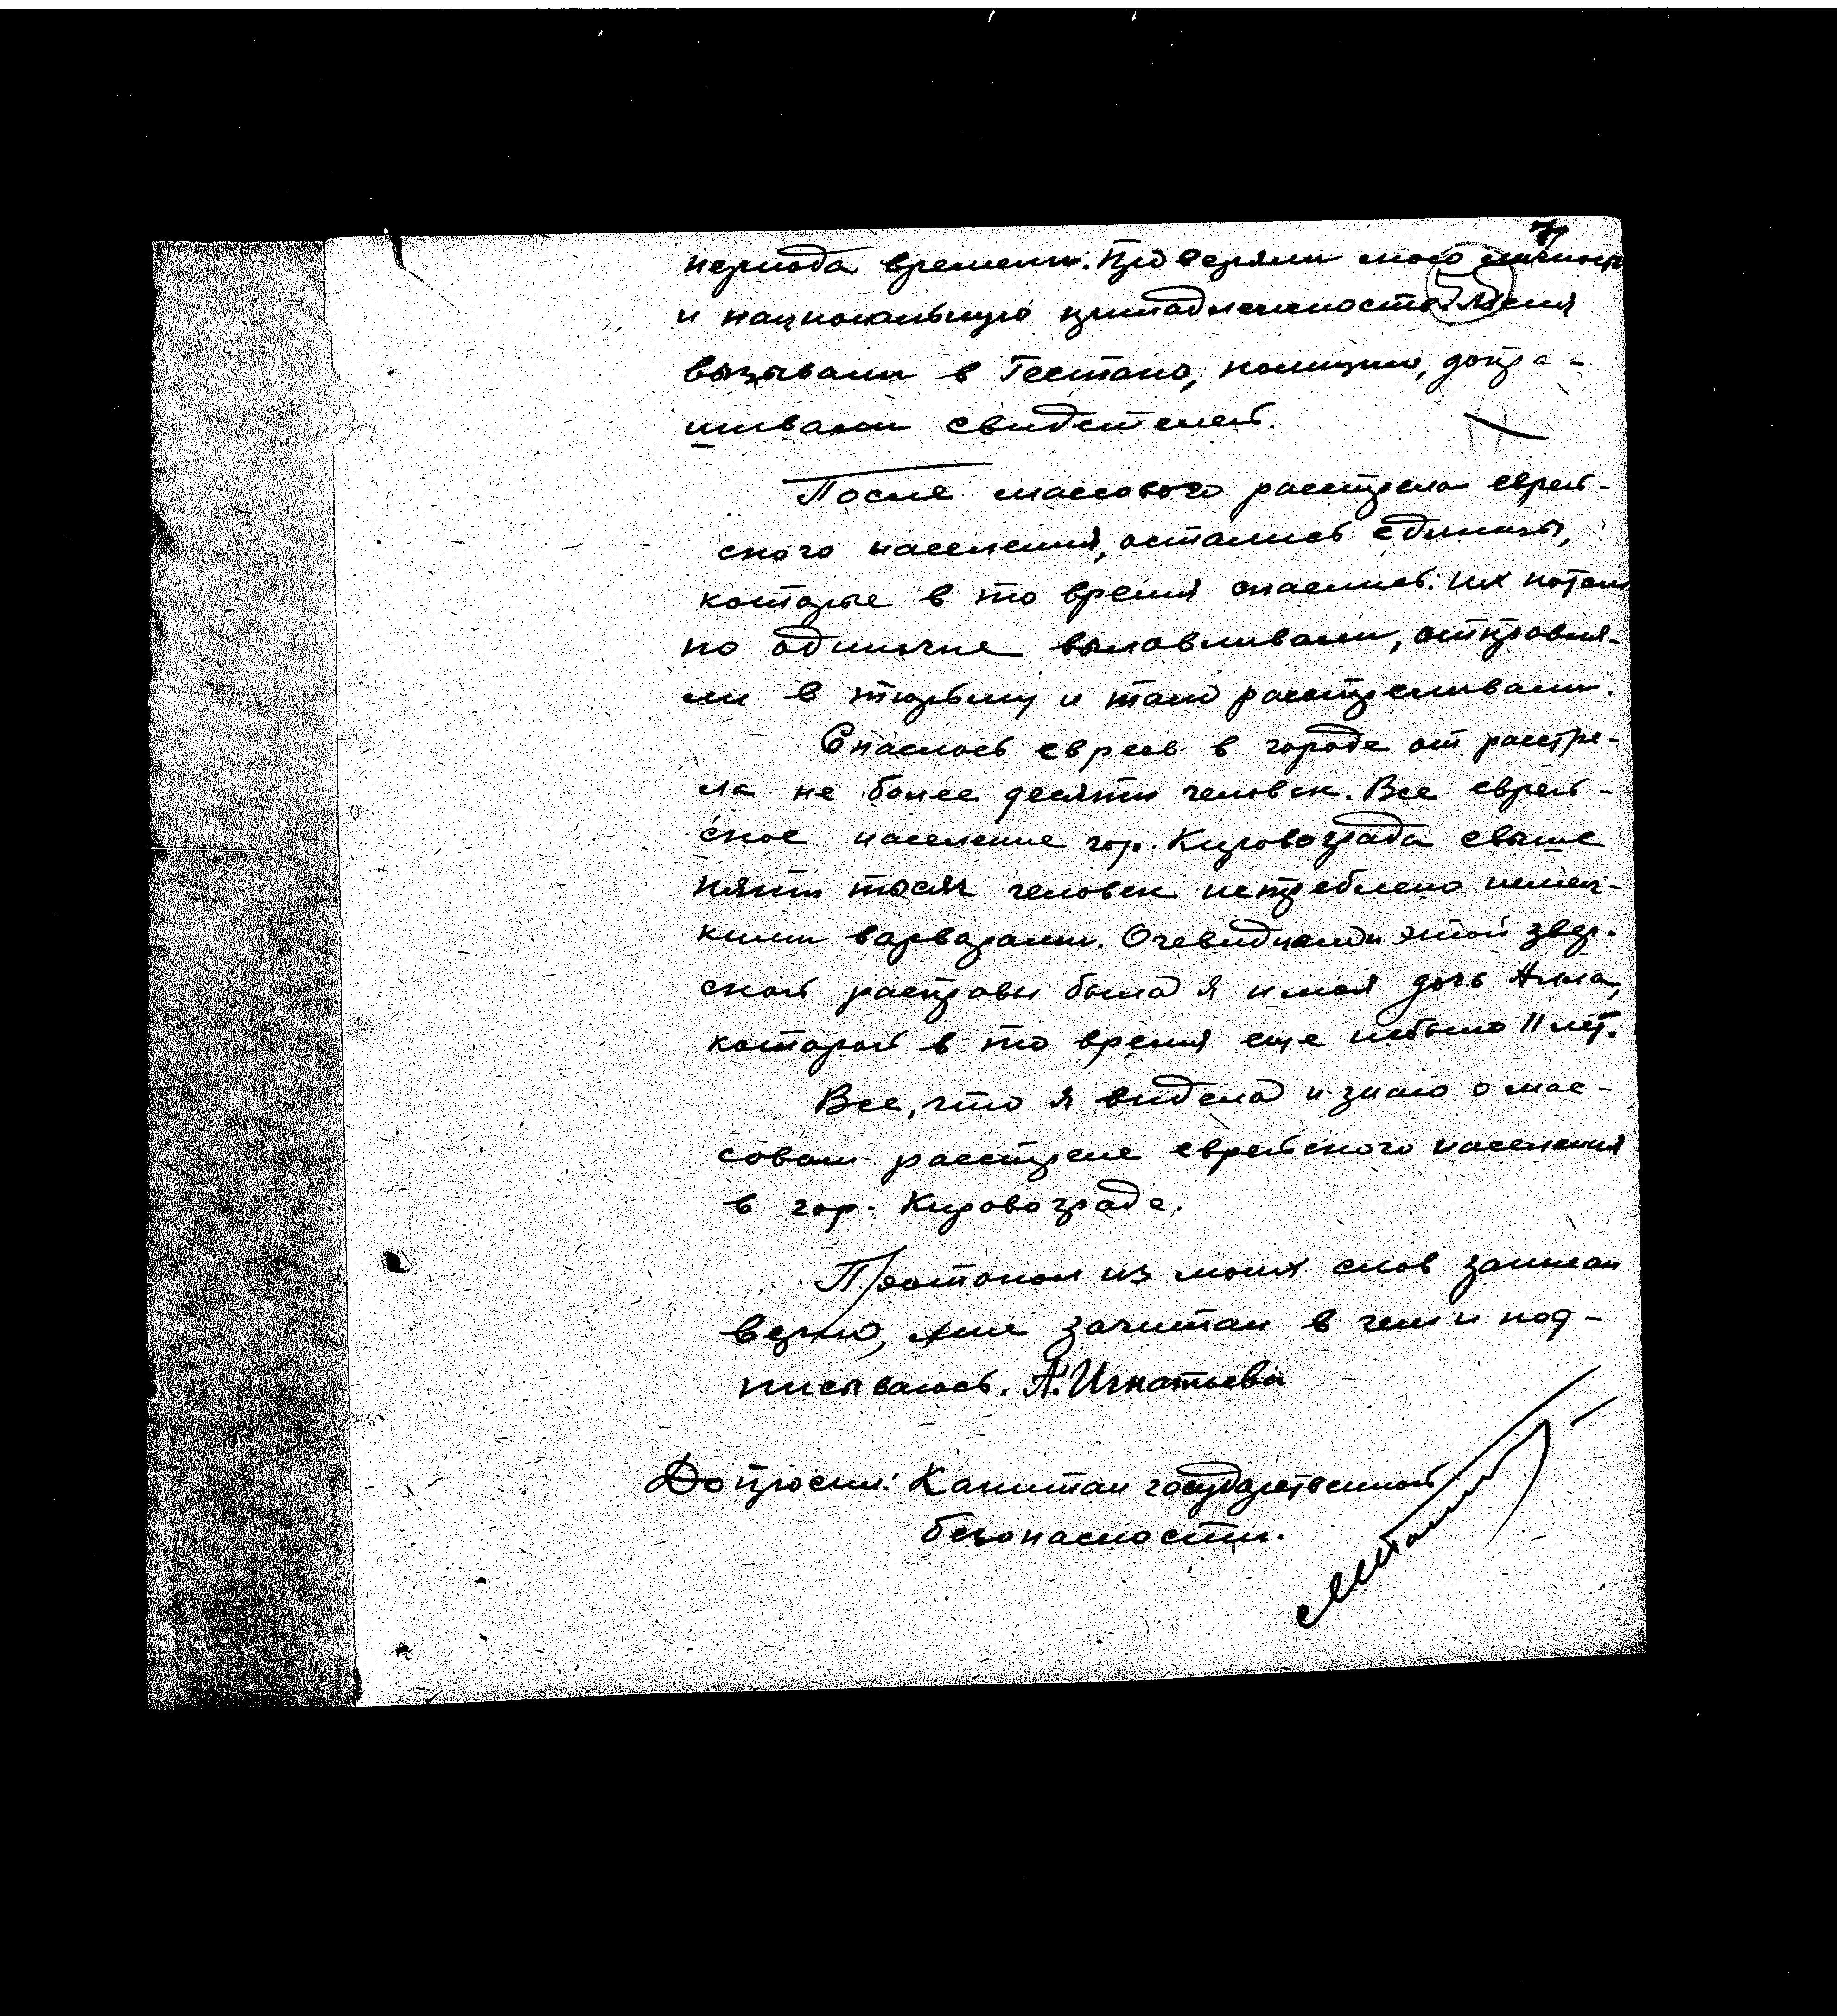 55
периода времени. Проверяли мою личность
и национальную принадлежность. Меня
вызывали в Гестапо, полицию, допра-
шивали свидетелей.
После массового расстрела еврей-
ского населения, остались единицы,
которые в то время спаслись. Их потом
по одиночке вылавливали, отправля-
ли в тюрьму и там расстреливали.
Спаслось евреев в городе от расстре-
ла не более десяти человек. Все еврей-
ское население гор. Кировограда свыше
пяти тысяч человек истреблено немец-
кими варварами. Очевидцами этой звер-
ской расправы была я и моя дочь Анна,
которой в то время еще небыло 11 лет.
Все, что я видела и знаю о мас-
совом расстреле еврейского населения
в гор. Кировограде.
Протокол из моих слов записан
верно, мне зачитан в чем и под-
писываюсь. А. Игнатьева
Допросил: Капитан государственной
безопасности.